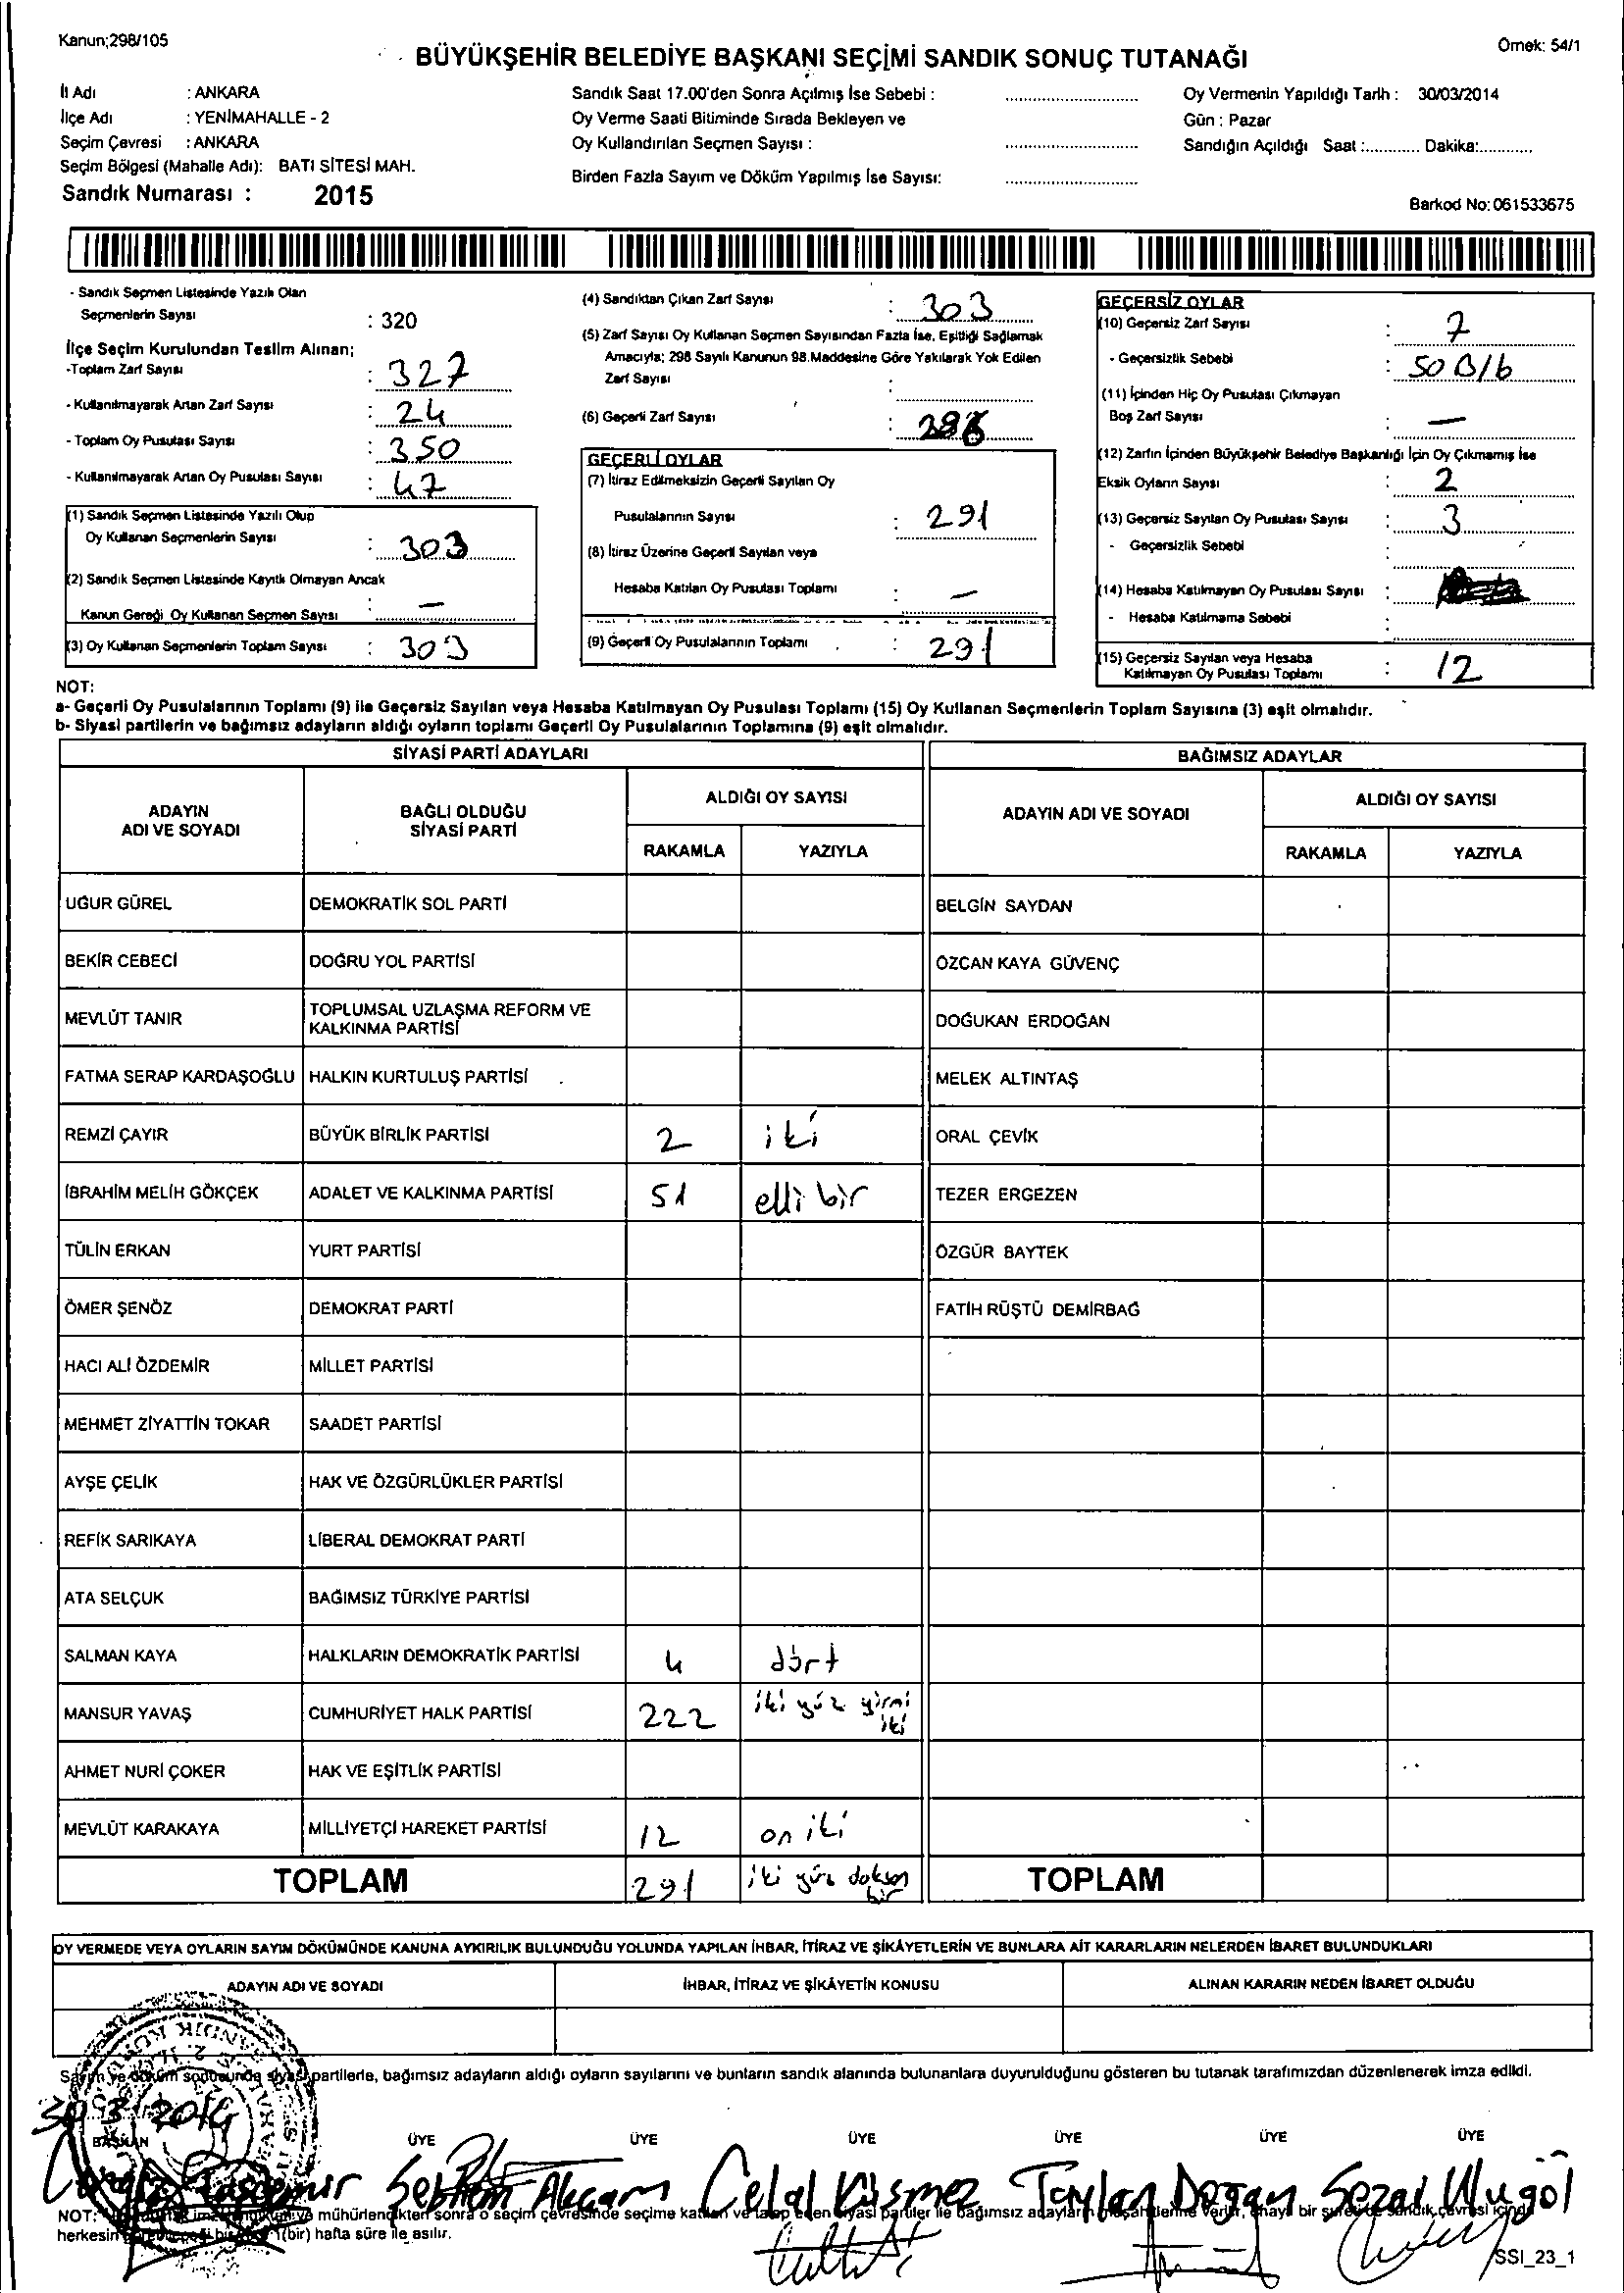 Kanun;298/105
BÜYÜKŞEHİR BELEDİYE BAŞKANI SEÇİMİ SANDIK SONUÇ TUTANAĞI
Örnek: 54/1
İl Adı : ANKARA
İlçe Adı : YENİMAHALLE - 2
Seçim Çevresi : ANKARA
Seçim Bölgesi (Mahalle Adı): BATI SİTESİ MAH.
Sandık Numarası : 2015
Sandık Saat 17.00'den Sonra Açılmış İse Sebebi :
Oy Verme Saati Bitiminde Sırada Bekleyen ve
Oy Kullandırılan Seçmen Sayısı :
Birden Fazla Sayım ve Döküm Yapılmış İse Sayısı:
Oy Vermenin Yapıldığı Tarih : 30/03/2014
Gün : Pazar
Sandığın Açıldığı Saat :............ Dakika:............
Barkod No:061533675
- Sandık Seçmen Listesinde Yazılı Olan
Seçmenlerin Sayısı : 320
İlçe Seçim Kurulundan Teslim Alınan;
-Toplam Zarf Sayısı : 327
- Kullanılmayarak Artan Zarf Sayısı : 24
- Toplam Oy Pusulası Sayısı : 350
- Kullanılmayarak Artan Oy Pusulası Sayısı : 47
(1) Sandık Seçmen Listesinde Yazılı Olup
Oy Kullanan Seçmenlerin Sayısı : 303
(2) Sandık Seçmen Listesinde Kayıtlı Olmayan Ancak
Kanun Gereği Oy Kullanan Seçmen Sayısı : —
(3) Oy Kullanan Seçmenlerin Toplam Sayısı : 303
(4) Sandıktan Çıkan Zarf Sayısı : 303
(5) Zarf Sayısı Oy Kullanan Seçmen Sayısından Fazla İse, Eşitliği Sağlamak
Amacıyla; 298 Sayılı Kanunun 98.Maddesine Göre Yakılarak Yok Edilen
Zarf Sayısı :
(6) Geçerli Zarf Sayısı :
GEÇERLİ OYLAR
(7) İtiraz Edilmeksizin Geçerli Sayılan Oy
Pusulalarının Sayısı : 291
(8) İtiraz Üzerine Geçerli Sayılan veya
Hesaba Katılan Oy Pusulası Toplamı : —
(9) Geçerli Oy Pusulalarının Toplamı : 291
GEÇERSİZ OYLAR
(10) Geçersiz Zarf Sayısı : 7
- Geçersizlik Sebebi :
(11) İçinden Hiç Oy Pusulası Çıkmayan
Boş Zarf Sayısı : —
(12) Zarfın İçinden Büyükşehir Belediye Başkanlığı İçin Oy Çıkmamış İse
Eksik Oyların Sayısı : 2
(13) Geçersiz Sayılan Oy Pusulası Sayısı : 3
- Geçersizlik Sebebi :
(14) Hesaba Katılmayan Oy Pusulası Sayısı :
- Hesaba Katılmama Sebebi :
(15) Geçersiz Sayılan veya Hesaba
Katılmayan Oy Pusulası Toplamı : 12
NOT:
a- Geçerli Oy Pusulalarının Toplamı (9) ile Geçersiz Sayılan veya Hesaba Katılmayan Oy Pusulası Toplamı (15) Oy Kullanan Seçmenlerin Toplam Sayısına (3) eşit olmalıdır.
b- Siyasi partilerin ve bağımsız adayların aldığı oyların toplamı Geçerli Oy Pusulalarının Toplamına (9) eşit olmalıdır.
SİYASİ PARTİ ADAYLARI BAĞIMSIZ ADAYLAR
ADAYIN ADI VE SOYADI BAĞLI OLDUĞU SİYASİ PARTİ ALDIĞI OY SAYISI ADAYIN ADI VE SOYADI ALDIĞI OY SAYISI
RAKAMLA YAZIYLA RAKAMLA YAZIYLA
UĞUR GÜREL DEMOKRATİK SOL PARTİ BELGİN SAYDAN
BEKİR CEBECİ DOĞRU YOL PARTİSİ ÖZCAN KAYA GÜVENÇ
MEVLÜT TANIR TOPLUMSAL UZLAŞMA REFORM VE KALKINMA PARTİSİ DOĞUKAN ERDOĞAN
FATMA SERAP KARDAŞOĞLU HALKIN KURTULUŞ PARTİSİ MELEK ALTINTAŞ
REMZİ ÇAYIR BÜYÜK BİRLİK PARTİSİ 2 iki ORAL ÇEVİK
İBRAHİM MELİH GÖKÇEK ADALET VE KALKINMA PARTİSİ 51 elli bir TEZER ERGEZEN
TÜLİN ERKAN YURT PARTİSİ ÖZGÜR BAYTEK
ÖMER ŞENÖZ DEMOKRAT PARTİ FATİH RÜŞTÜ DEMİRBAĞ
HACI ALİ ÖZDEMİR MİLLET PARTİSİ
MEHMET ZİYATTİN TOKAR SAADET PARTİSİ
AYŞE ÇELİK HAK VE ÖZGÜRLÜKLER PARTİSİ
REFİK SARIKAYA LİBERAL DEMOKRAT PARTİ
ATA SELÇUK BAĞIMSIZ TÜRKİYE PARTİSİ
SALMAN KAYA HALKLARIN DEMOKRATİK PARTİSİ 4 dört
MANSUR YAVAŞ CUMHURİYET HALK PARTİSİ 222 iki yüz yirmi iki
AHMET NURİ ÇOKER HAK VE EŞİTLİK PARTİSİ
MEVLÜT KARAKAYA MİLLİYETÇİ HAREKET PARTİSİ 12 on iki
TOPLAM 291 iki yüz doksan bir TOPLAM
OY VERMEDE VEYA OYLARIN SAYIM DÖKÜMÜNDE KANUNA AYKIRILIK BULUNDUĞU YOLUNDA YAPILAN İHBAR, İTİRAZ VE ŞİKÂYETLERİN VE BUNLARA AİT KARARLARIN NELERDEN İBARET BULUNDUKLARI
ADAYIN ADI VE SOYADI İHBAR, İTİRAZ VE ŞİKÂYETİN KONUSU ALINAN KARARIN NEDEN İBARET OLDUĞU
Sayım ve döküm sonucunda siyasi partilerle, bağımsız adayların aldığı oyların sayılarını ve bunların sandık alanında bulunanlara duyurulduğunu gösteren bu tutanak tarafımızdan düzenlenerek imza edildi.
30/3/2014
BAŞKAN ÜYE ÜYE ÜYE ÜYE ÜYE ÜYE
Celal Küsmez Taylan Doğan Sezai Ulugöl
NOT: mühürlendikten sonra o seçim çevresinde seçime katılan ve talep eden siyasi partiler ile bağımsız adayların verilir, bir
herkesin 1(bir) hafta süre ile asılır.
SSI_23_1